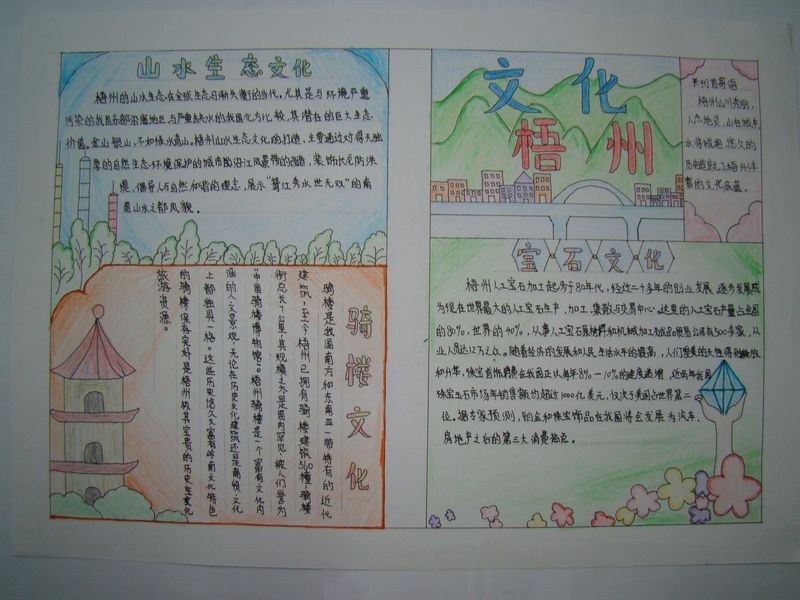 山水生态文化
梧州的山水生态,在全球生态日渐失衡的当代,尤其是与环境严重
污染的我国东部沿海地区与严重缺水的我国北方比较,其潜在的巨大生态
价值。金山银山,不如绿水青山。梧州山水生态文化的打造,主要通过对得天独
厚的自然生态环境保护的城市的沿江风景带的塑造,装饰长老防洪
堤,倡导人与自然和谐的理念,展示“鸳江秀水世无双”的南
国山水之都风貌。
文化
梧州
美州首寄语
梧州山川秀丽,
人杰地灵,山在城中,
水海城抱,悠久的
历史造就了梧州丰
富的文化底蕴。
骑楼文化
骑楼是我国南方和东南亚一带特有的近代
建筑,至今梧州已拥有骑楼建筑560幢,骑楼
街总长7公里,其规模之大是国内罕见,被人们誉为
“中国骑楼博物馆”。梧州骑楼是一个富有文化内
涵的人文景观,无论在历史文化建筑还是商贸文化
上都独具一格。这些历史悠久又富有岭南文化特色
的骑楼保存完好是梧州极其宝贵的历史文化
旅游资源。
宝石文化
梧州人工宝石加工起步于80年代,经过二十多年的创业发展,逐步发展成
为现在世界最大的人工宝石生产、加工、集散与交易中心。这里的人工宝石产量占全国
的80%,世界的40%,从事人工宝石原材料和机械加工及成品贸易公司有500多家,从
业人员达12万之众。随着经济的发展和人民生活水平的提高,人们爱美的天性得到释放
和升华,珠宝首饰消费在我国正以每年8%—10%的速度递增,近几年我国
珠宝玉石市场年销售额均超过1000亿美元,仅次于美国占世界第二
位。据专家预测,铂金和珠宝饰品在我国将会发展为汽车、
房地产之后的第三大消费热点。